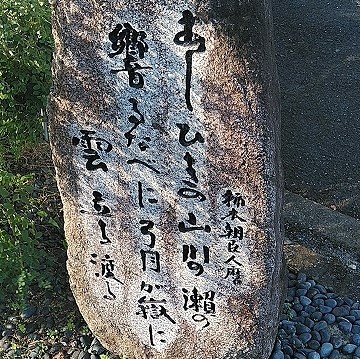 柿本朝臣人麿
あしひきの山川の瀬の
響るなへに弓月が嶽に
雲立ち渡る